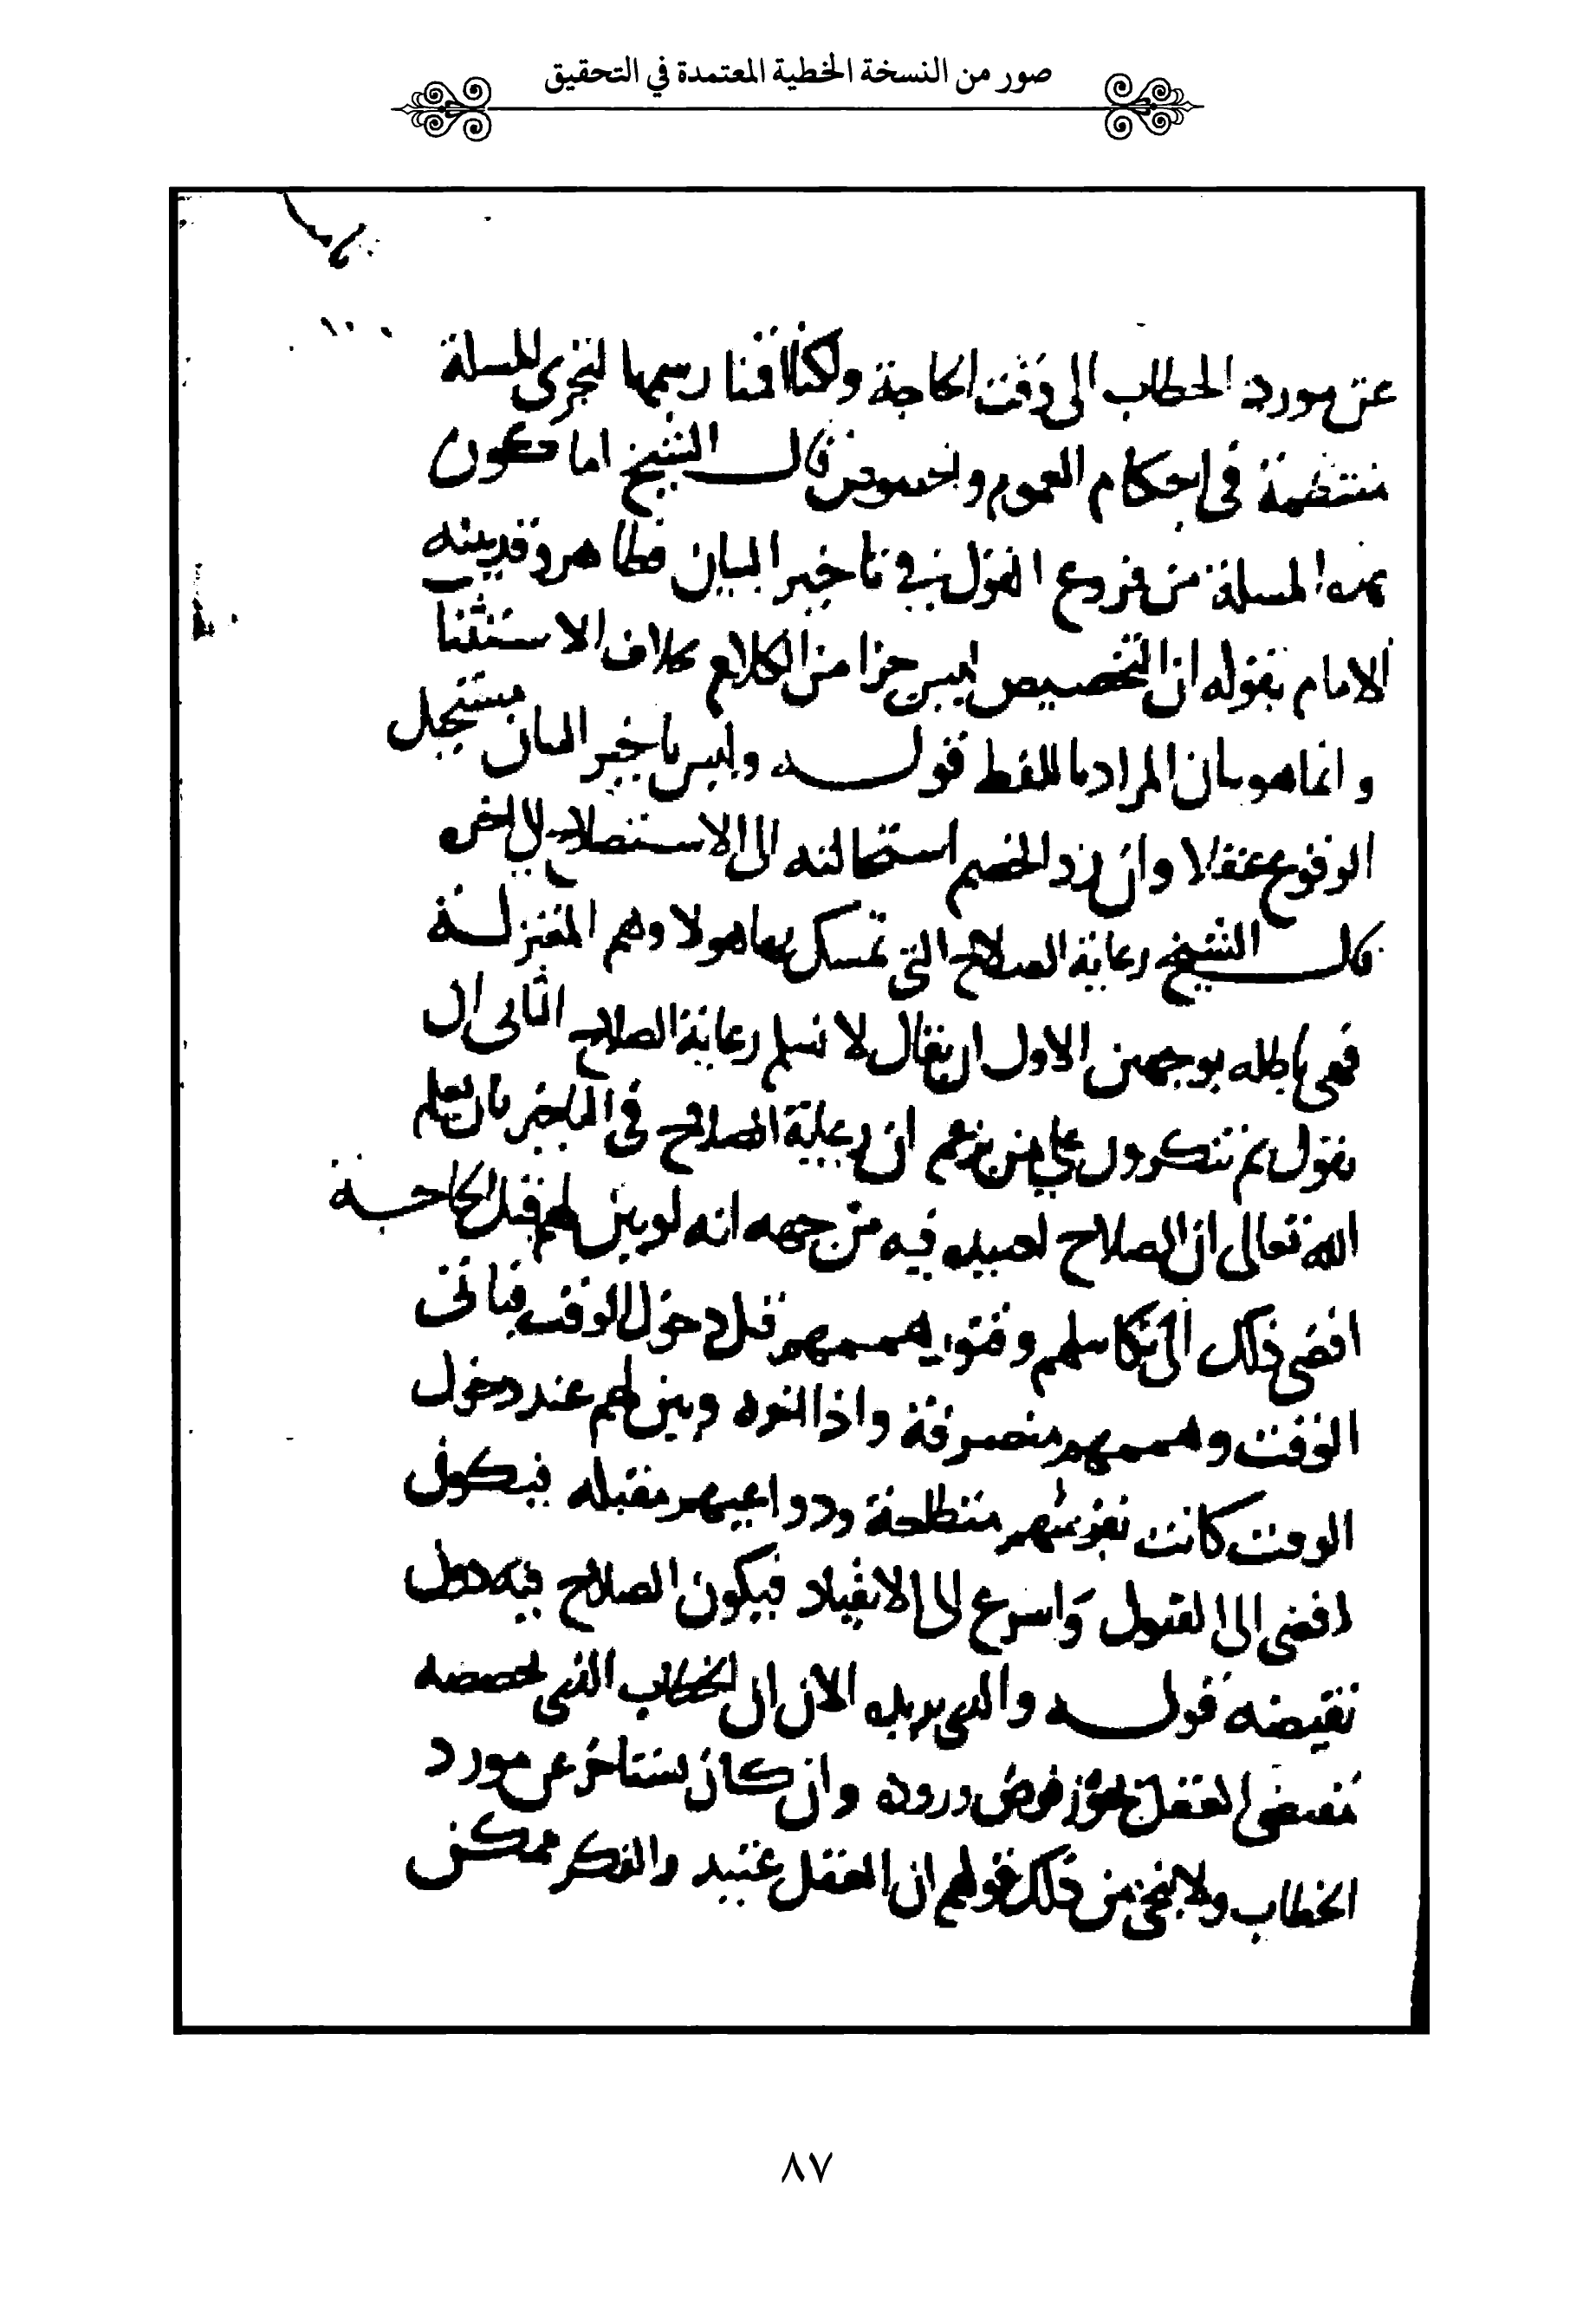 صور من النسخة الخطية المعتمدة في التحقيق
عن مورد الخطاب الى وقت الحاجة ولكنا اقمنا رسمها لتجرى المسلة
منتظمة في احكام العموم والخصوص قال الشيخ اما كون
هذه المسلة من فروع القول في تاخير البيان فظاهر وقد بينه
الامام بقوله ان التخصيص ليس جزا من الكلام بخلاف الاستثنا
وانما هو بيان المراد باللفظ قوله وليس تاخير البيان مستحيل
الوقوع عقلا وان رد الخصم استحالته الى الاستصلاح الى اخره
قال الشيخ رعاية الصلاح التي تمسك بها هولا وهم المعتزلة
فهى باطله بوجهين الاول ان يقال لا نسلم رعاية الصلاح الثانى ان
نقول بم تنكرون على من يزعم ان رعاية الصلاح في التاخير بان يعلم
الله تعالى ان الصلاح لعبيده فيه من جهه انه لو بين لهم قبل الحاجة
افضى ذلك الى تكاسلهم وفتور هممهم قبل دخول الوقت فياتى
الوقت وهممهم منصرفة واذا اخره وبين لهم عند دخول
الوقت كانت نفوسهم متطلعة ودواعيهم مقبله فيكون
افضى الى القبول واسرع الى الانقياد فيكون الصلاح فيه دون
نقيضه قوله والذى نريده الان ان الخطاب الذى يخصصه
مقتضى العقل يجوز فرض وروده وان كان يستاخر عن مورد
الخطاب ولا ينجى من ذلك قولهم ان العقل عتيد والفكر ممكن
٨٧